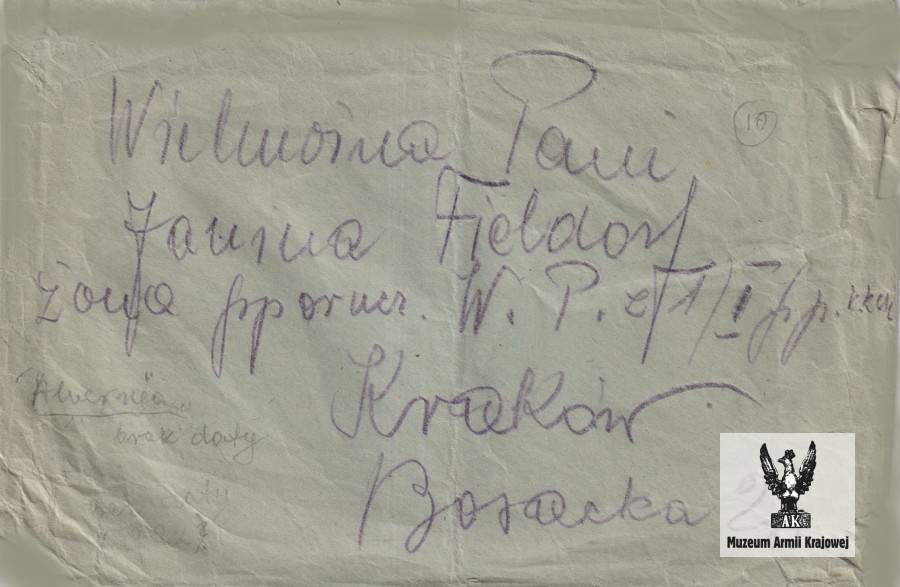 Wielmożna Pani
10
Janina Fieldorf
Żona pporucz. W. P. z 1/I pp.
Kraków
Bosacka
Alwernia
brak daty
AK
Muzeum Armii Krajowej